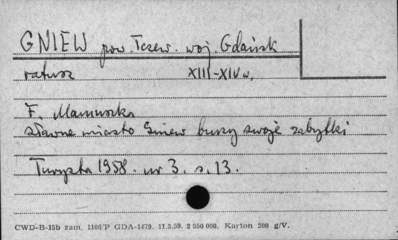 GNIEW pow. Tczew. woj. Gdańsk
ratusz XIII-XIV w.
F. Mamuszka
Sławne miasto Gniew burzy swoje zabytki
Turysta 1958. nr 3. s. 13.
CWD-B-15b zam. 1106/P GDA-1479. 11.5.59. 2 550 000. Karton 200 g/V.